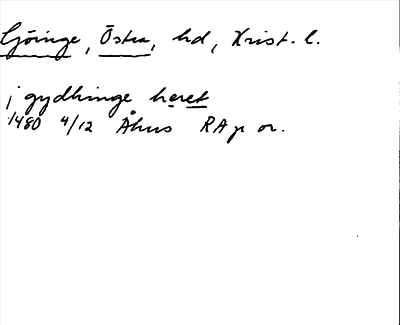 Göinge, Östra, hd, Krist. l.
j gydhinge heret
1480 4/12 Åhus RAp or.